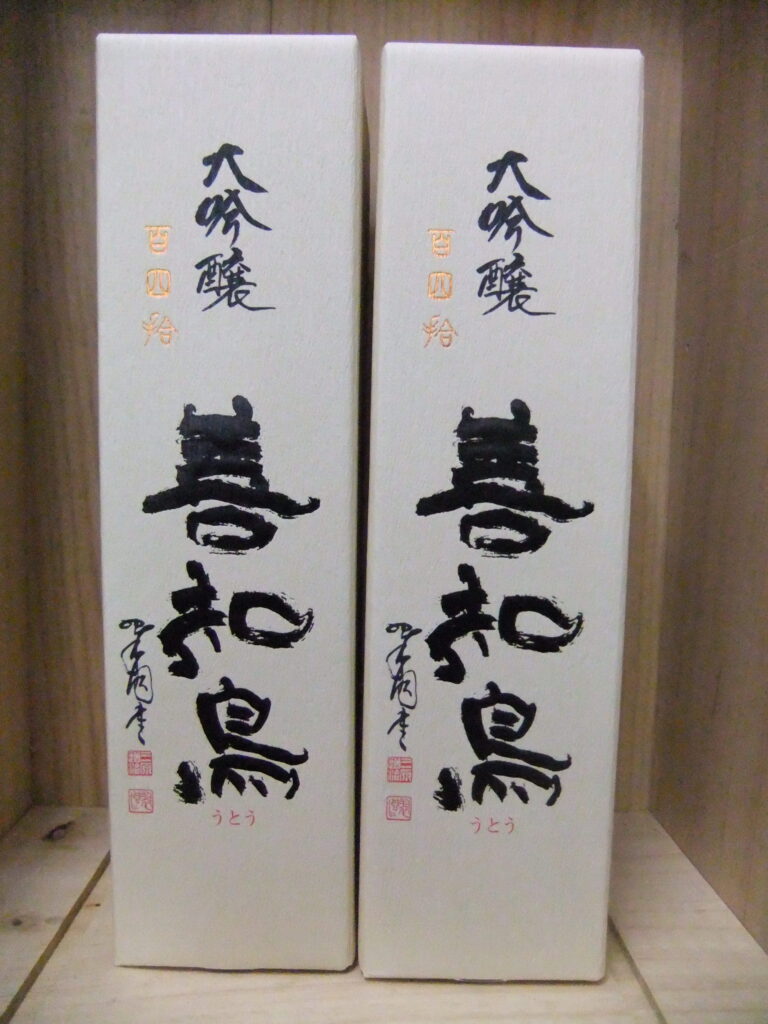 大吟醸
百四拾
善知鳥
うとう
大吟醸
百四拾
善知鳥
うとう